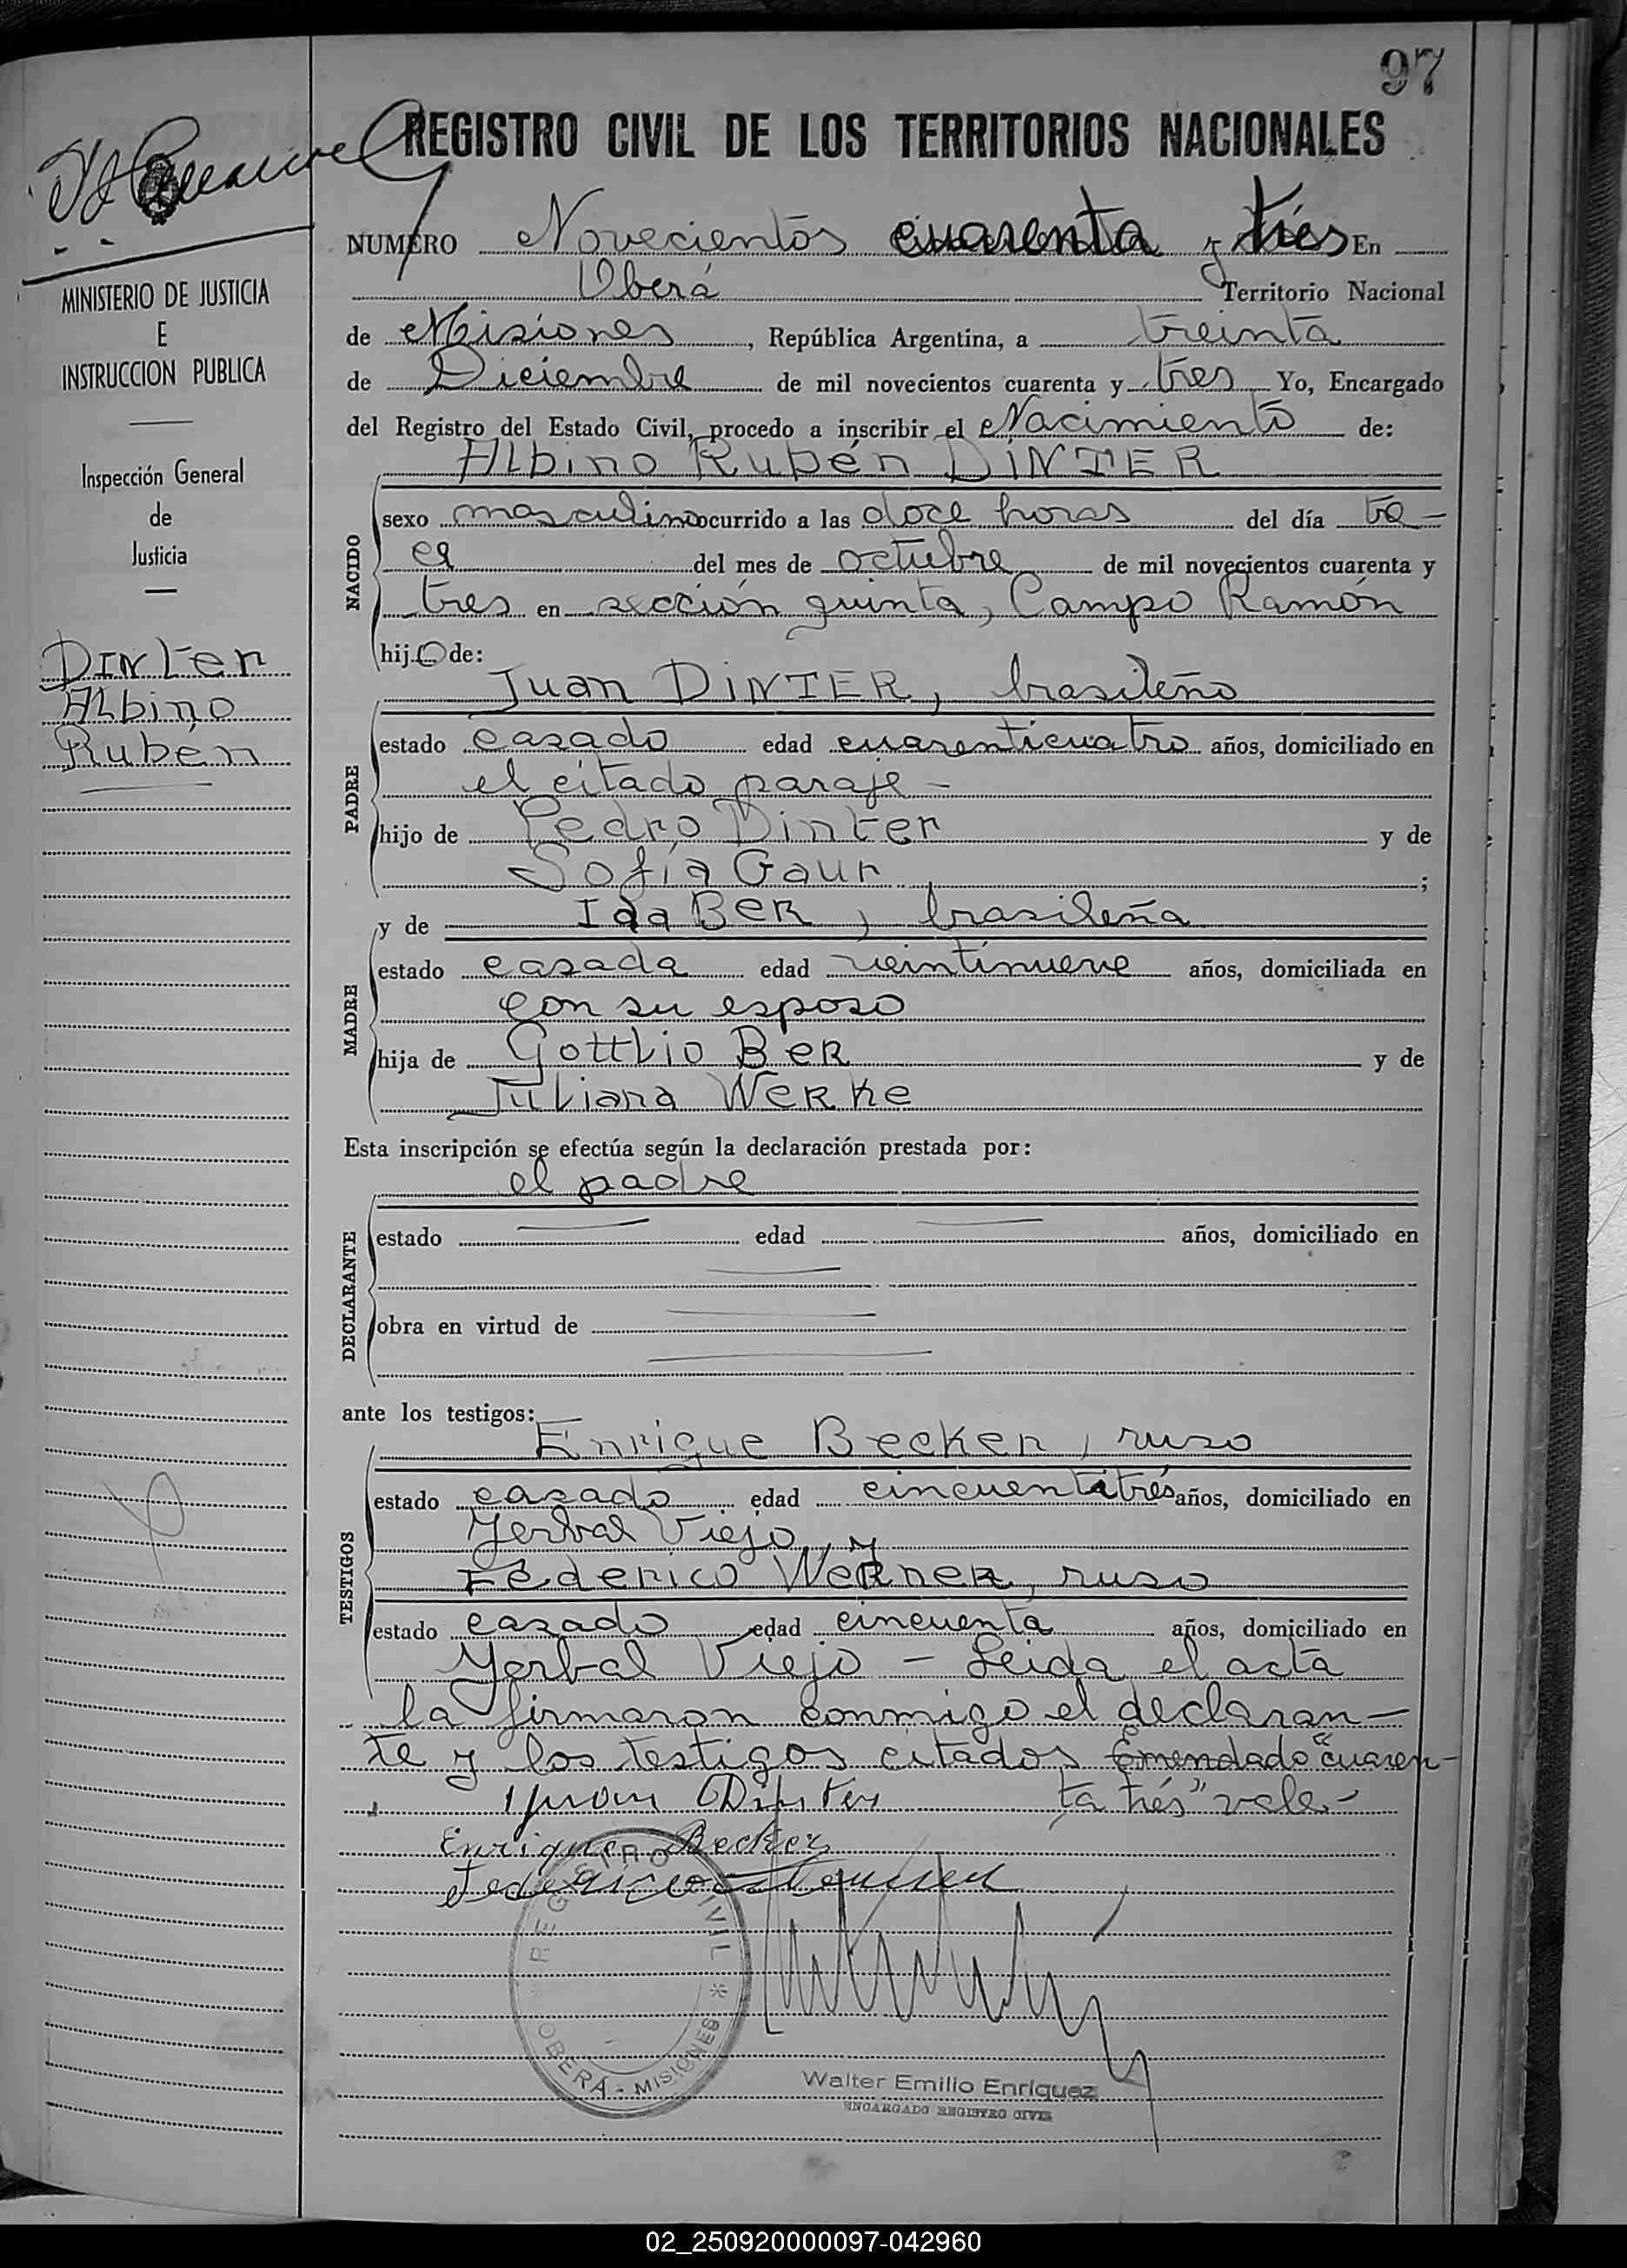 97
REGISTRO CIVIL DE LOS TERRITORIOS NACIONALES
MINISTERIO DE JUSTICIA
E
INSTRUCCION PUBLICA
Inspección General
de
Justicia
Dinter
Albino
Rubén
NUMERO Novecientos cuarenta y trés En
Oberá Territorio Nacional
de Misiones, República Argentina, a treinta
de Diciembre de mil novecientos cuarenta y tres Yo, Encargado
del Registro del Estado Civil, procedo a inscribir el Nacimiento de:
Albino Rubén DINTER
NACIDO
sexo masculino ocurrido a las doce horas del día
del mes de octubre de mil novecientos cuarenta y
tres en sección quinta, Campo Ramón
hijo de:
Juan DINTER, brasileño
PADRE
estado casado edad cuarenticuatro años, domiciliado en
el citado paraje-
hijo de Pedro Dinter y de
Sofía Gaur;
y de Ida BER, brasileña
MADRE
estado casada edad veintinueve años, domiciliada en
con su esposo
hija de Gottlio BER y de
Juliana Werke
Esta inscripción se efectúa según la declaración prestada por:
el padre
DECLARANTE
estado edad años, domiciliado en
obra en virtud de
ante los testigos:
Enrique Becker, ruso
TESTIGOS
estado casado edad cincuentitrés años, domiciliado en
Yerbal Viejo, y
Federico Werner, ruso
estado casado edad cincuenta años, domiciliado en
Yerbal Viejo - Leida el acta
la firmaron conmigo el declaran-
te y los testigos citados Emendado "cuaren-
ta trés" vale-
Juan Dinter
Enrique Becker
Federico
REGISTRO CIVIL * OBERÁ - MISIONES
Walter Emilio Enriquez
ENCARGADO REGISTRO CIVIL
02_250920000097-042960